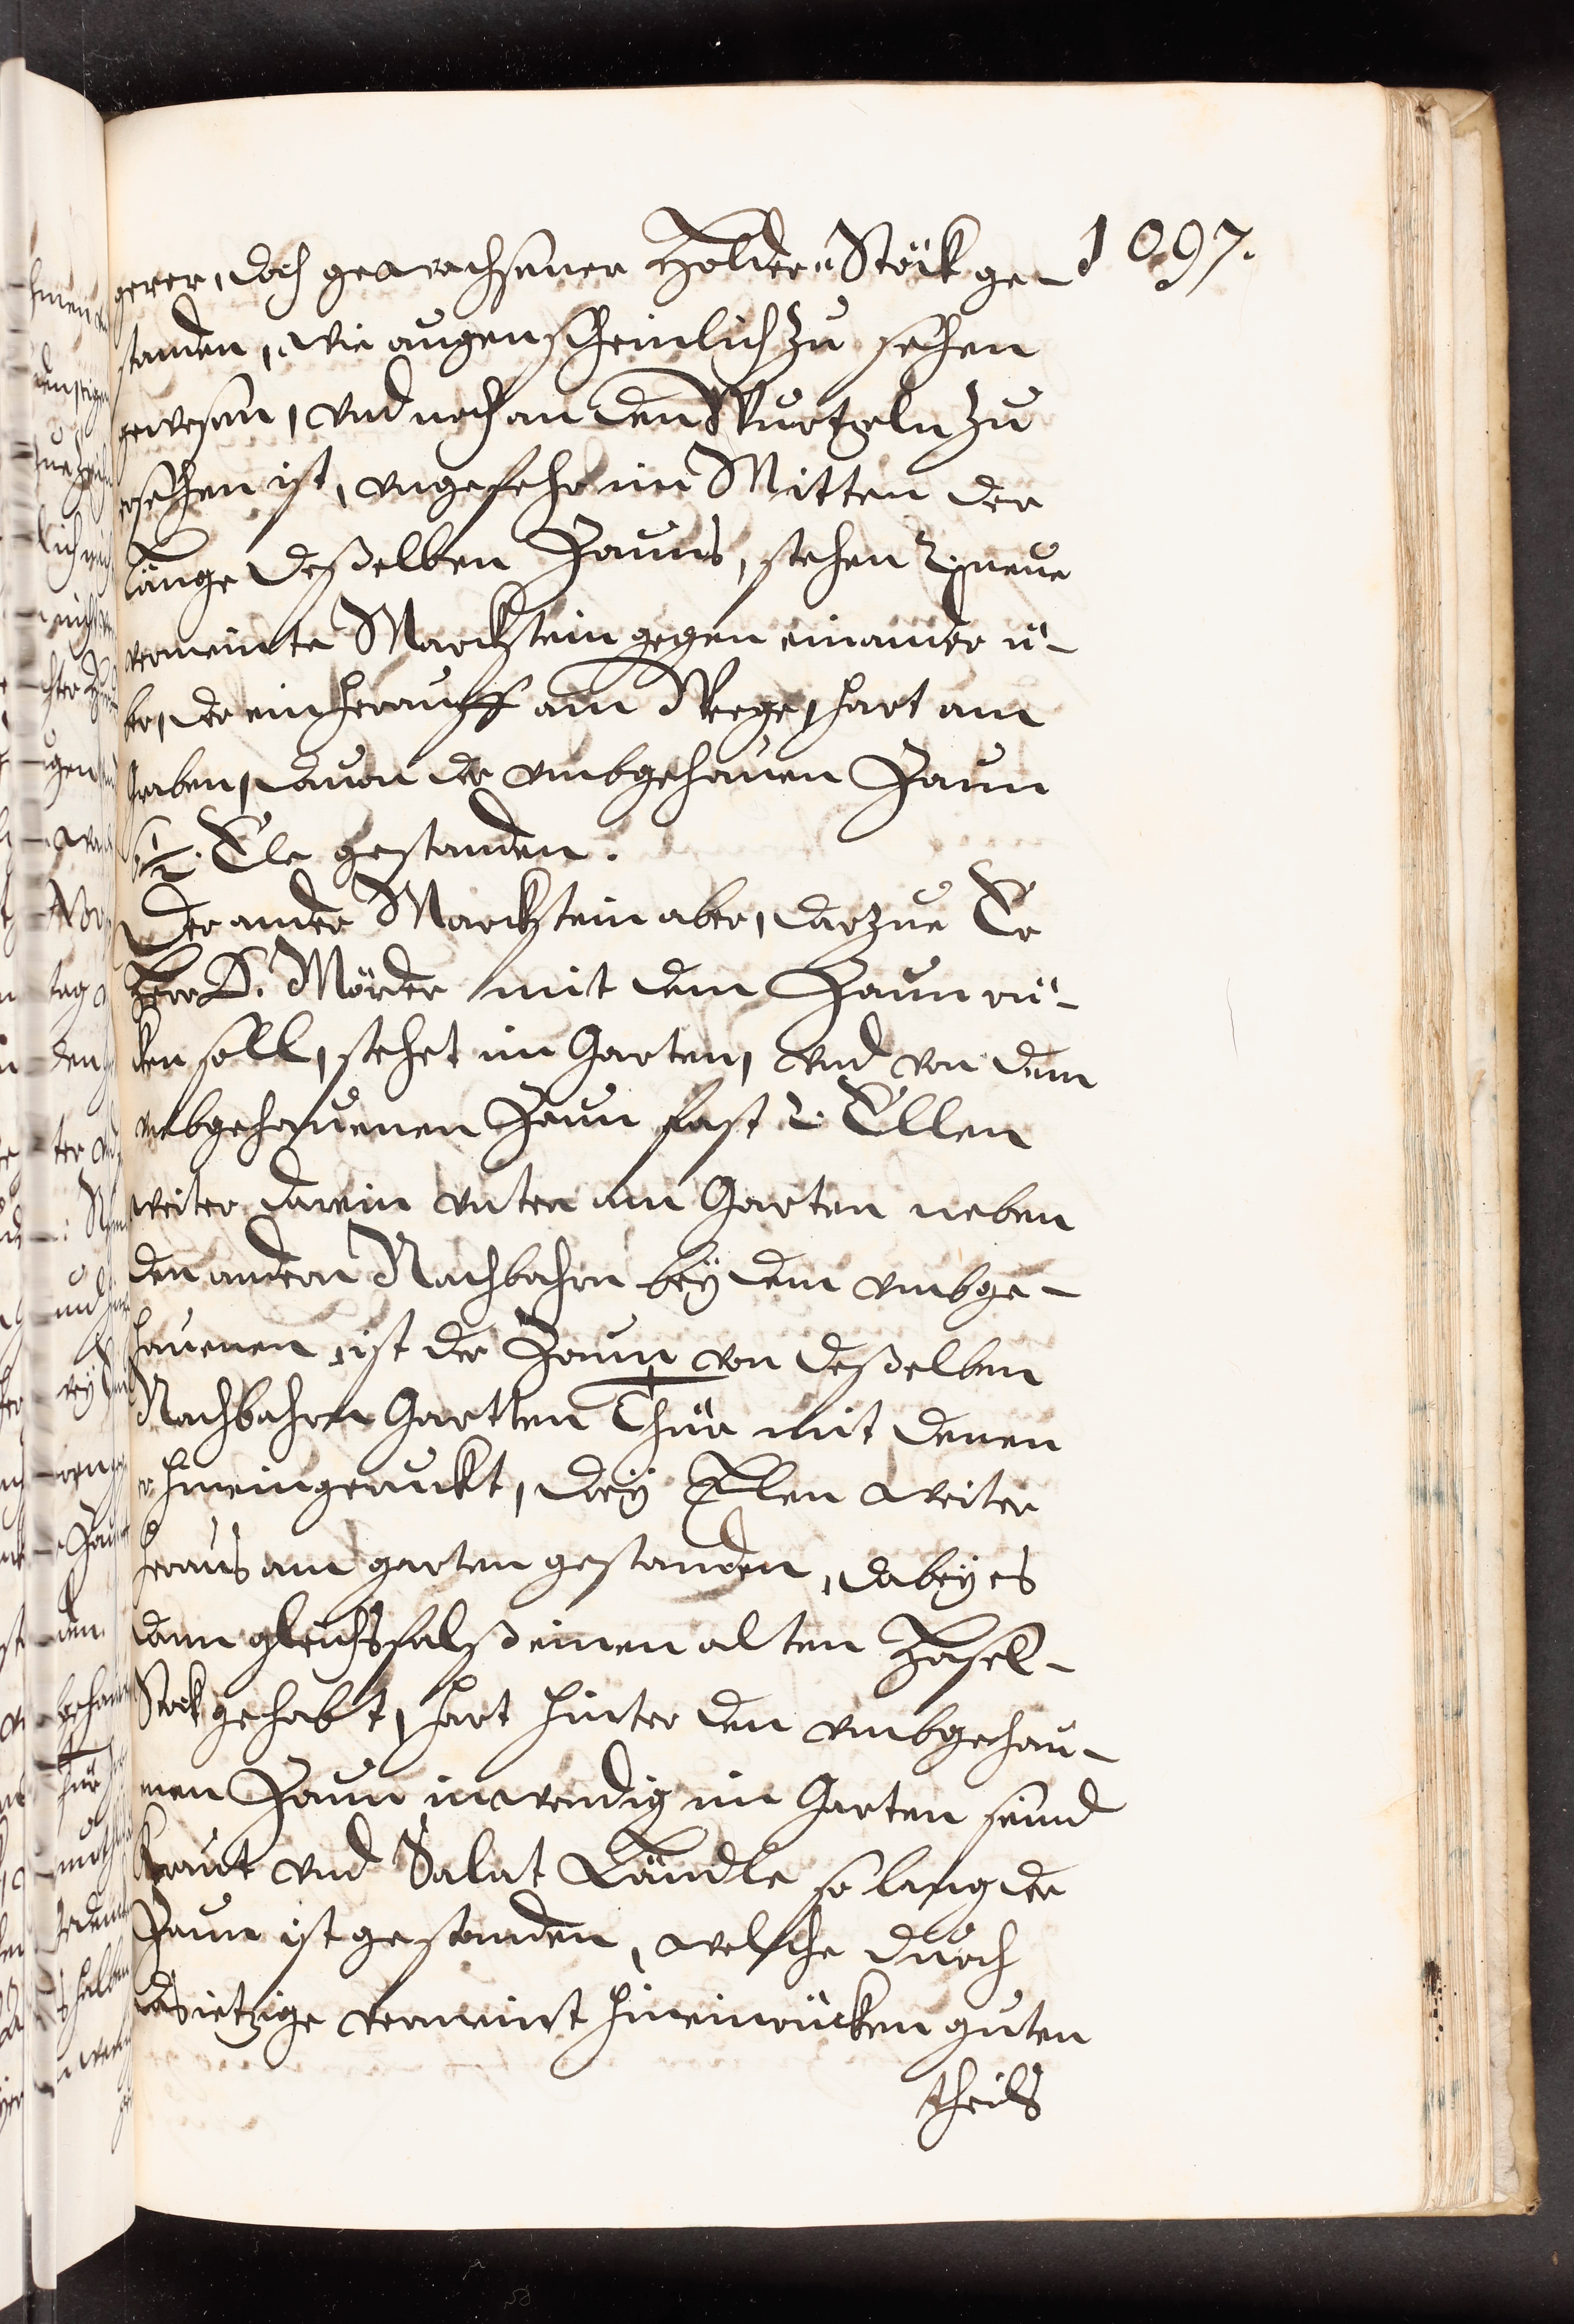 1097.
gerer, doch gewachsener Holder Stöck ge-
standen, wie augenscheinlich zu sehen
gewesen, vnd noch an den Wurtzeln zu
ersehen ist, vngefehr in Mitten der
länge deßelben Zauns, stehen 2. neue
vermeinte Marckstein gegen einander ü-
ber, der ein herauff am Weege, hart am
graben, dauon der vmbgehauen Zaun
1/2. Ele gestanden.
Der ander Marckstein aber, darzue Er
Herr D. Mörder mit dem Zaun rü-
cken soll, stehet im Garten, vnd von dem
vmbgehauenen Zaun fast 2. Ellen
weiter darein vnten am Garten neben
den andern Nachbahrn bey dem vmbge-
hauenen, ist der Zaun von deßelben
Nachbahrn Gartten Thür mit denen
er hineingeruckt, drey Elen weiter
heraus am garten gestanden, dabey es
dann gleichsfalß einen alten Hasel-
Stock gehabt, hart hinter den vmbgehau-
enen Zaun inwendig im Garten seind
Kraut vnd Salat Ländle so lang der
Zaun ist gestanden, welche durch
das ietzige vermeint hineinrücken guten
theils